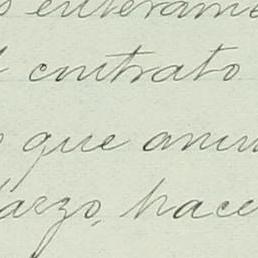 enteramen
contrato
que anun
arzo, hace